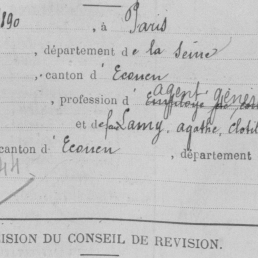 1890, à Paris
, département de la Seine
, canton d'Ecouen
agent génér
, profession d'Employé de com
et de feu Lamy, agathe, Clotil
canton d'Ecouen, département
44
ISION DU CONSEIL DE REVISION.